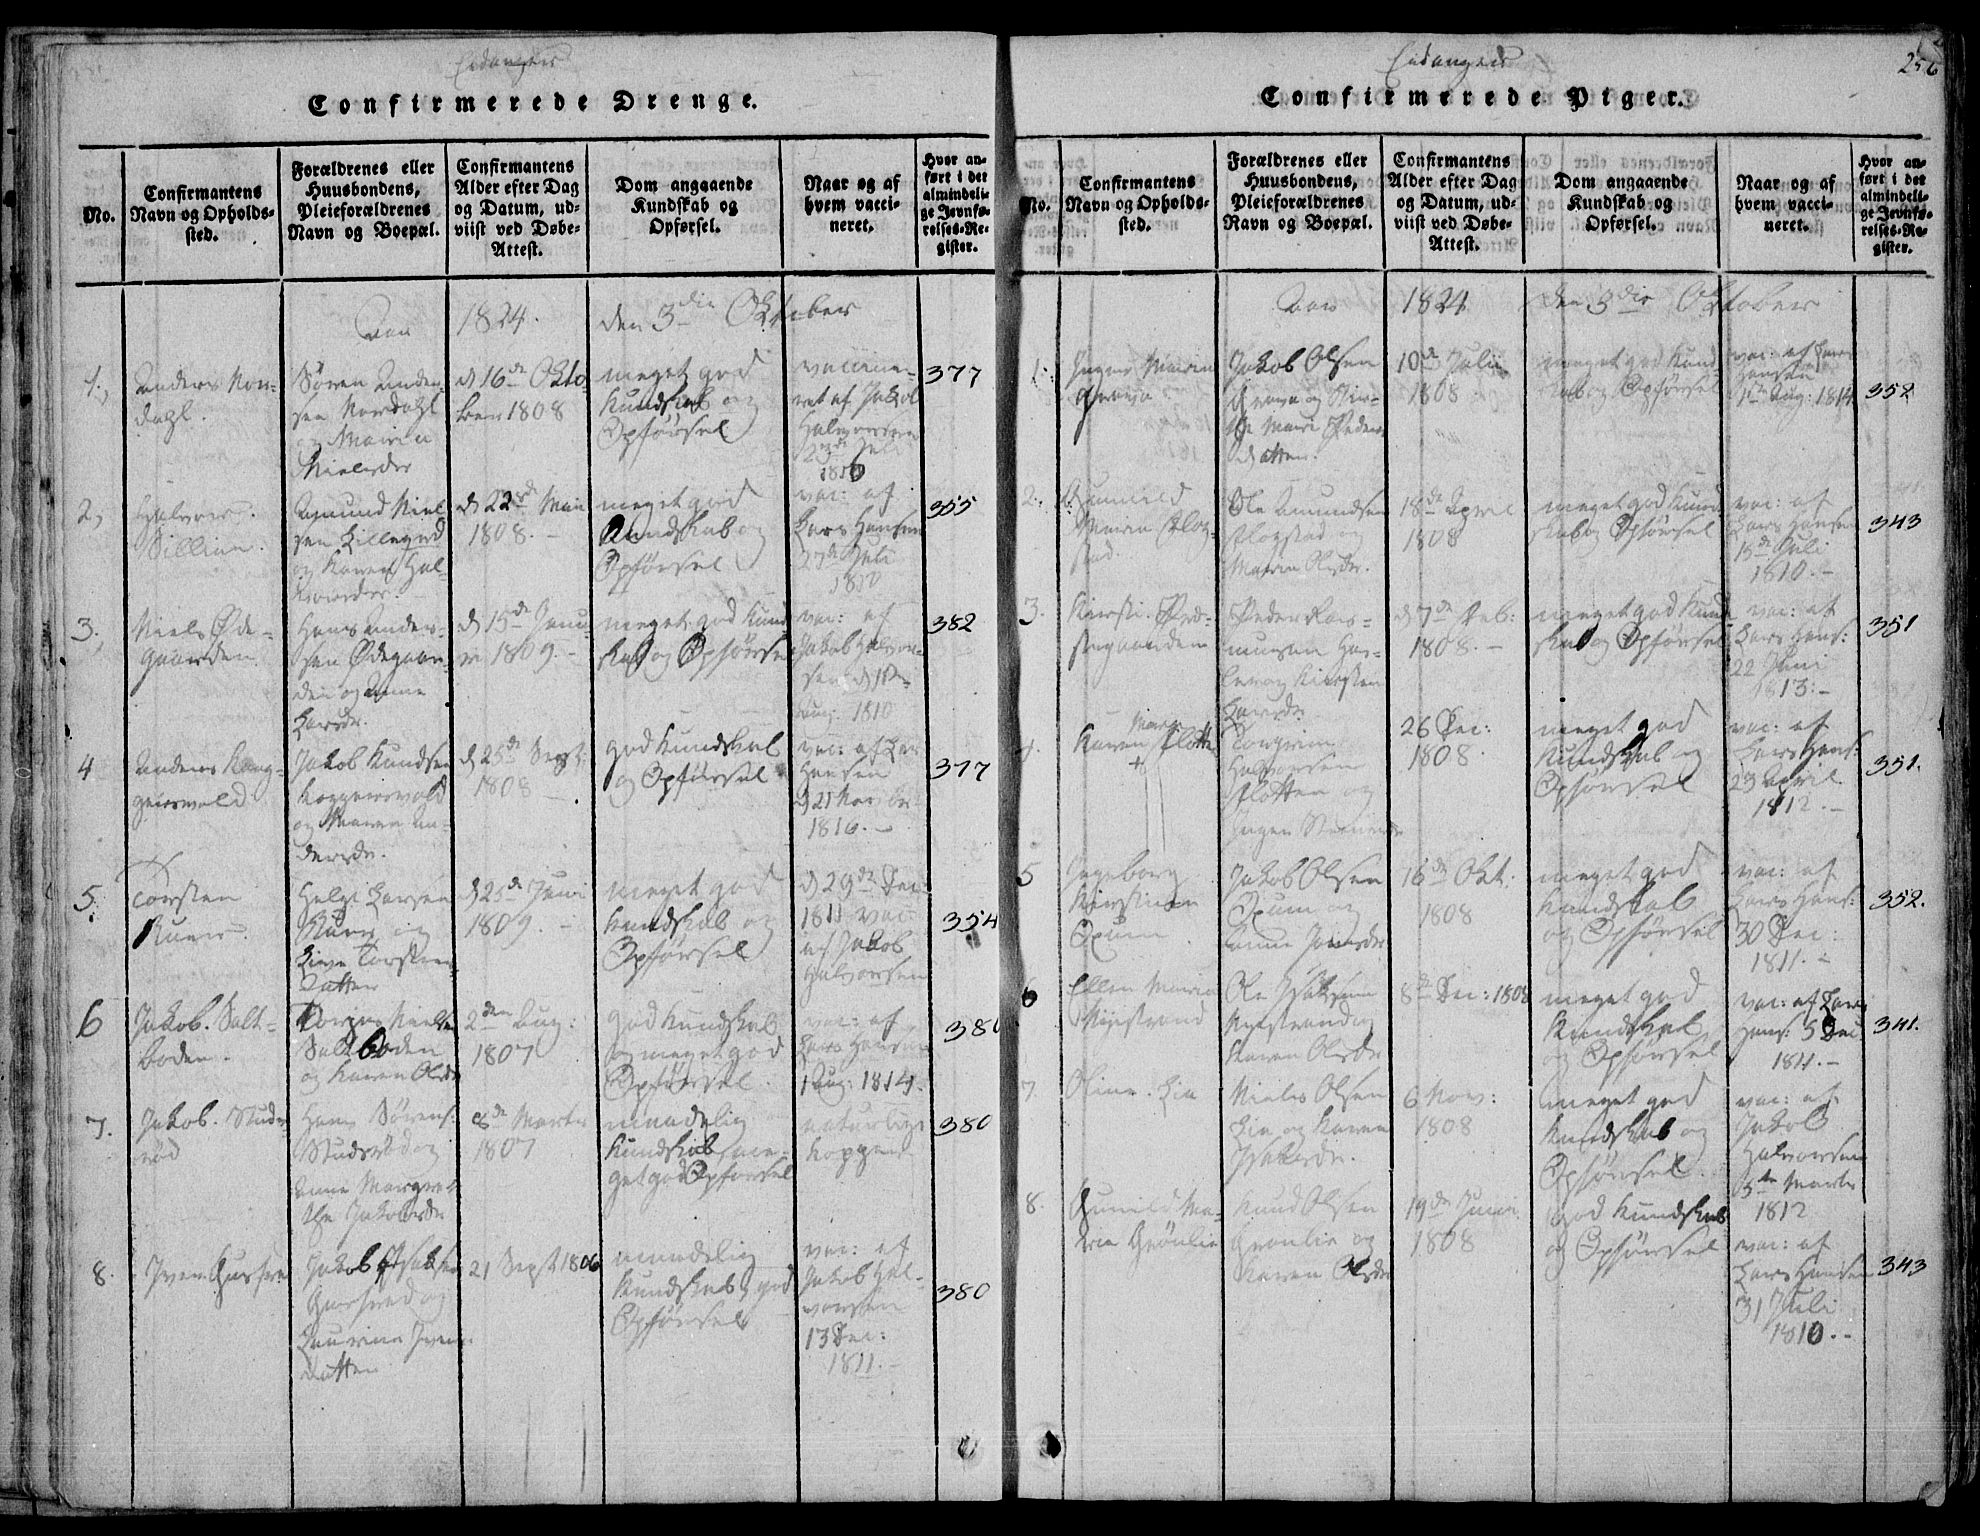 Eidanger
Confirmerede Drenge.
No.
Confirmantens
Navn og Opholds-
sted.
Forældrenes eller
Huusbondens,
Pleieforældrenes
Navn og Boepæl.
Confirmantens
Alder efter Dag
og Datum, ud-
viist ved Døbe-
Attest.
Dom angaaende
Kundskab og
Opførsel.
Naar og af
hvem vacci-
neret.
Hvor an-
ført i det
almindeli-
ge Jevnfø-
relses-Re-
gister.
Aar 1824. den 3die Oktober
1.
Anders Nor-
dahl.
Søren Ander-
sen Nordahl
og Maria
Nielsdr
d 16de Okto
ber 1808
meget god
Kundskab og
Opførsel
vaccine-
ret af Jakob
Halvorsen
23de Juli
1810
377
2,
Halvor
Amund Niel
sen Lillegrd
og Karen Hal-
d 22de Mai
1808.
meget god
Kundskab og
Opførsel
vac: af
Lars Hansen
27de Juli
1810
355
3.
Niels Øde-
gaarden
Hans Anders-
sen Ødegaar-
den og Anne
Larsdr.
d 15de Janu
ar 1809.
meget god Kund
skab og Opførsel
vac: af
Jakob Halvor-
sen d 1ste
Aug: 1810
382
4
Anders
Jakob Knudsen
og Maren An-
dersdr.
d 25de Sept:
1808
god Kundskab
og Opførsel
vac: af Lar
Hansen
1816.
377
5.
Torsten
Helge Larsen
og
Live Torstens
Datter
d 25de Juni
1809.
meget god
Kundskab og
Opførsel
d 29de Dec:
1811 vac:
af Jakob
Halvorsen
354
6
Jakob. Salt-
boden.
Nielsen
Saltboden
og Karen Olsdr
2den Aug:
1807
god Kundskab
og meget god
Opførsel.
vac: af
Lars Hansen
1 Aug: 1814.
7.
Jakob. Studs
rød
Hans Sørens:
Studsrød og
Anne Margre
the Jakobsdr
8de Marts
1807
maadelig
Kundskab, me-
get god Opførsel
naturlige
kopper
380
8.
Iver
Jakob Isaksen
og
Iver
datter
21 Sept 1806
maadelig
Kundskab, god
Opførsel
vac: af
Jakob Hal-
vorsen
13 Dec:
1811.
380
Eidanger
256
Confirmerede Piger.
No.
Confirmantens
Navn og Opholds-
sted.
Forældrenes eller
Huusbondens,
Pleieforældrenes
Navn og Boepæl.
Confirmantens
Alder efter Dag
og Datum, ud-
viist ved Døbe-
Attest.
Dom angaaende
Kundskab og
Opførsel.
Naar og af
hvem vacci-
neret.
Hvor an-
ført i det
almindeli-
ge Jevnfø-
relses-Re-
gister.
Aar 1824 den 3die Oktober
1.
Maria
Jakob Olsen
og Kir-
the Marie Peders
datter.
10de Julii
1808
meget god Kund
skab og Opførsel
vac: af Lars
Hansen
1ste Aug: 1814
352
2.
Gunild
Maria Flog-
stad
Ole Amundsen
Flogstad og
Maren Olsdr.
18de April
1808
meget god Kund
skab og Opførsel
vac: af
Lars Hansen
15de Juli
1810.
343
3.
Kirsti. Præ-
stegaarden
Peder Ras-
musen
og Kirsten
Larsdr
d 7de Feb:
1808.
meget god Kund
skab og Opførsel
vac: af
Lars Hans:
22 Juni
1813.
351
4.
Karen Maria Flotten
+
Torgrim
Halvorsen
Flotten og
Inger
26 Dec:
1808
meget god
Kundskab og
Opførsel
vac: af
Lars Hans:
23 April
1812.
351.
5
Ingeborg
Kirstine
Jakob Olsen
og
Anne
16de Okt:
1808
meget god
Kundskab
og Opførsel
vac: af
Lars Hans:
30 Dec:
1811.
352.
6
Ellen Maria
Nystrand
Ole Isaksen
Nystrand og
Karen Olsdr
8de Dec: 1808
meget god
Kundskab
og Opførsel
vac: af Lars
Hans: 5 Dec
1811.
341.
7.
Oline. Lia
Niels Olsen
Lia og Karen
Isaksdr.
6 Nov:
1808
meget god
Kundskab og
Opførsel.
vac: af
Jakob
Halvorsen
5te Marts
1812
8.
Gunild Ma-
ria Grønlie
Knud Olsen
Grønlie og
Karen Olsdr
19de Juni
1808
god Kundskab
og Opførsel
vac: af
Lars Hansen
31 Juli
1810.
343